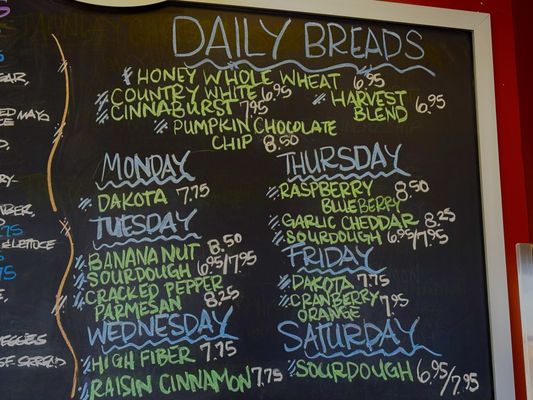 DAILY BREADS
HONEY WHOLE WHEAT 6.95
COUNTRY WHITE 6.95
CINNABURST 7.95
HARVEST
BLEND 6.95
PUMPKIN CHOCOLATE
CHIP 8.50
MONDAY
DAKOTA 7.75
TUESDAY
BANANA NUT 8.50
SOURDOUGH 6.95/7.95
CRACKED PEPPER
PARMESAN 8.25
WEDNESDAY
HIGH FIBER 7.75
RAISIN CINNAMON 7.75
THURSDAY
RASPBERRY
BLUEBERRY 8.50
GARLIC CHEDDAR 8.25
SOURDOUGH 6.95/7.95
FRIDAY
DAKOTA 7.75
CRANBERRY
ORANGE 7.95
SATURDAY
SOURDOUGH 6.95/7.95
MAYO
LETTUCE
SPREAD